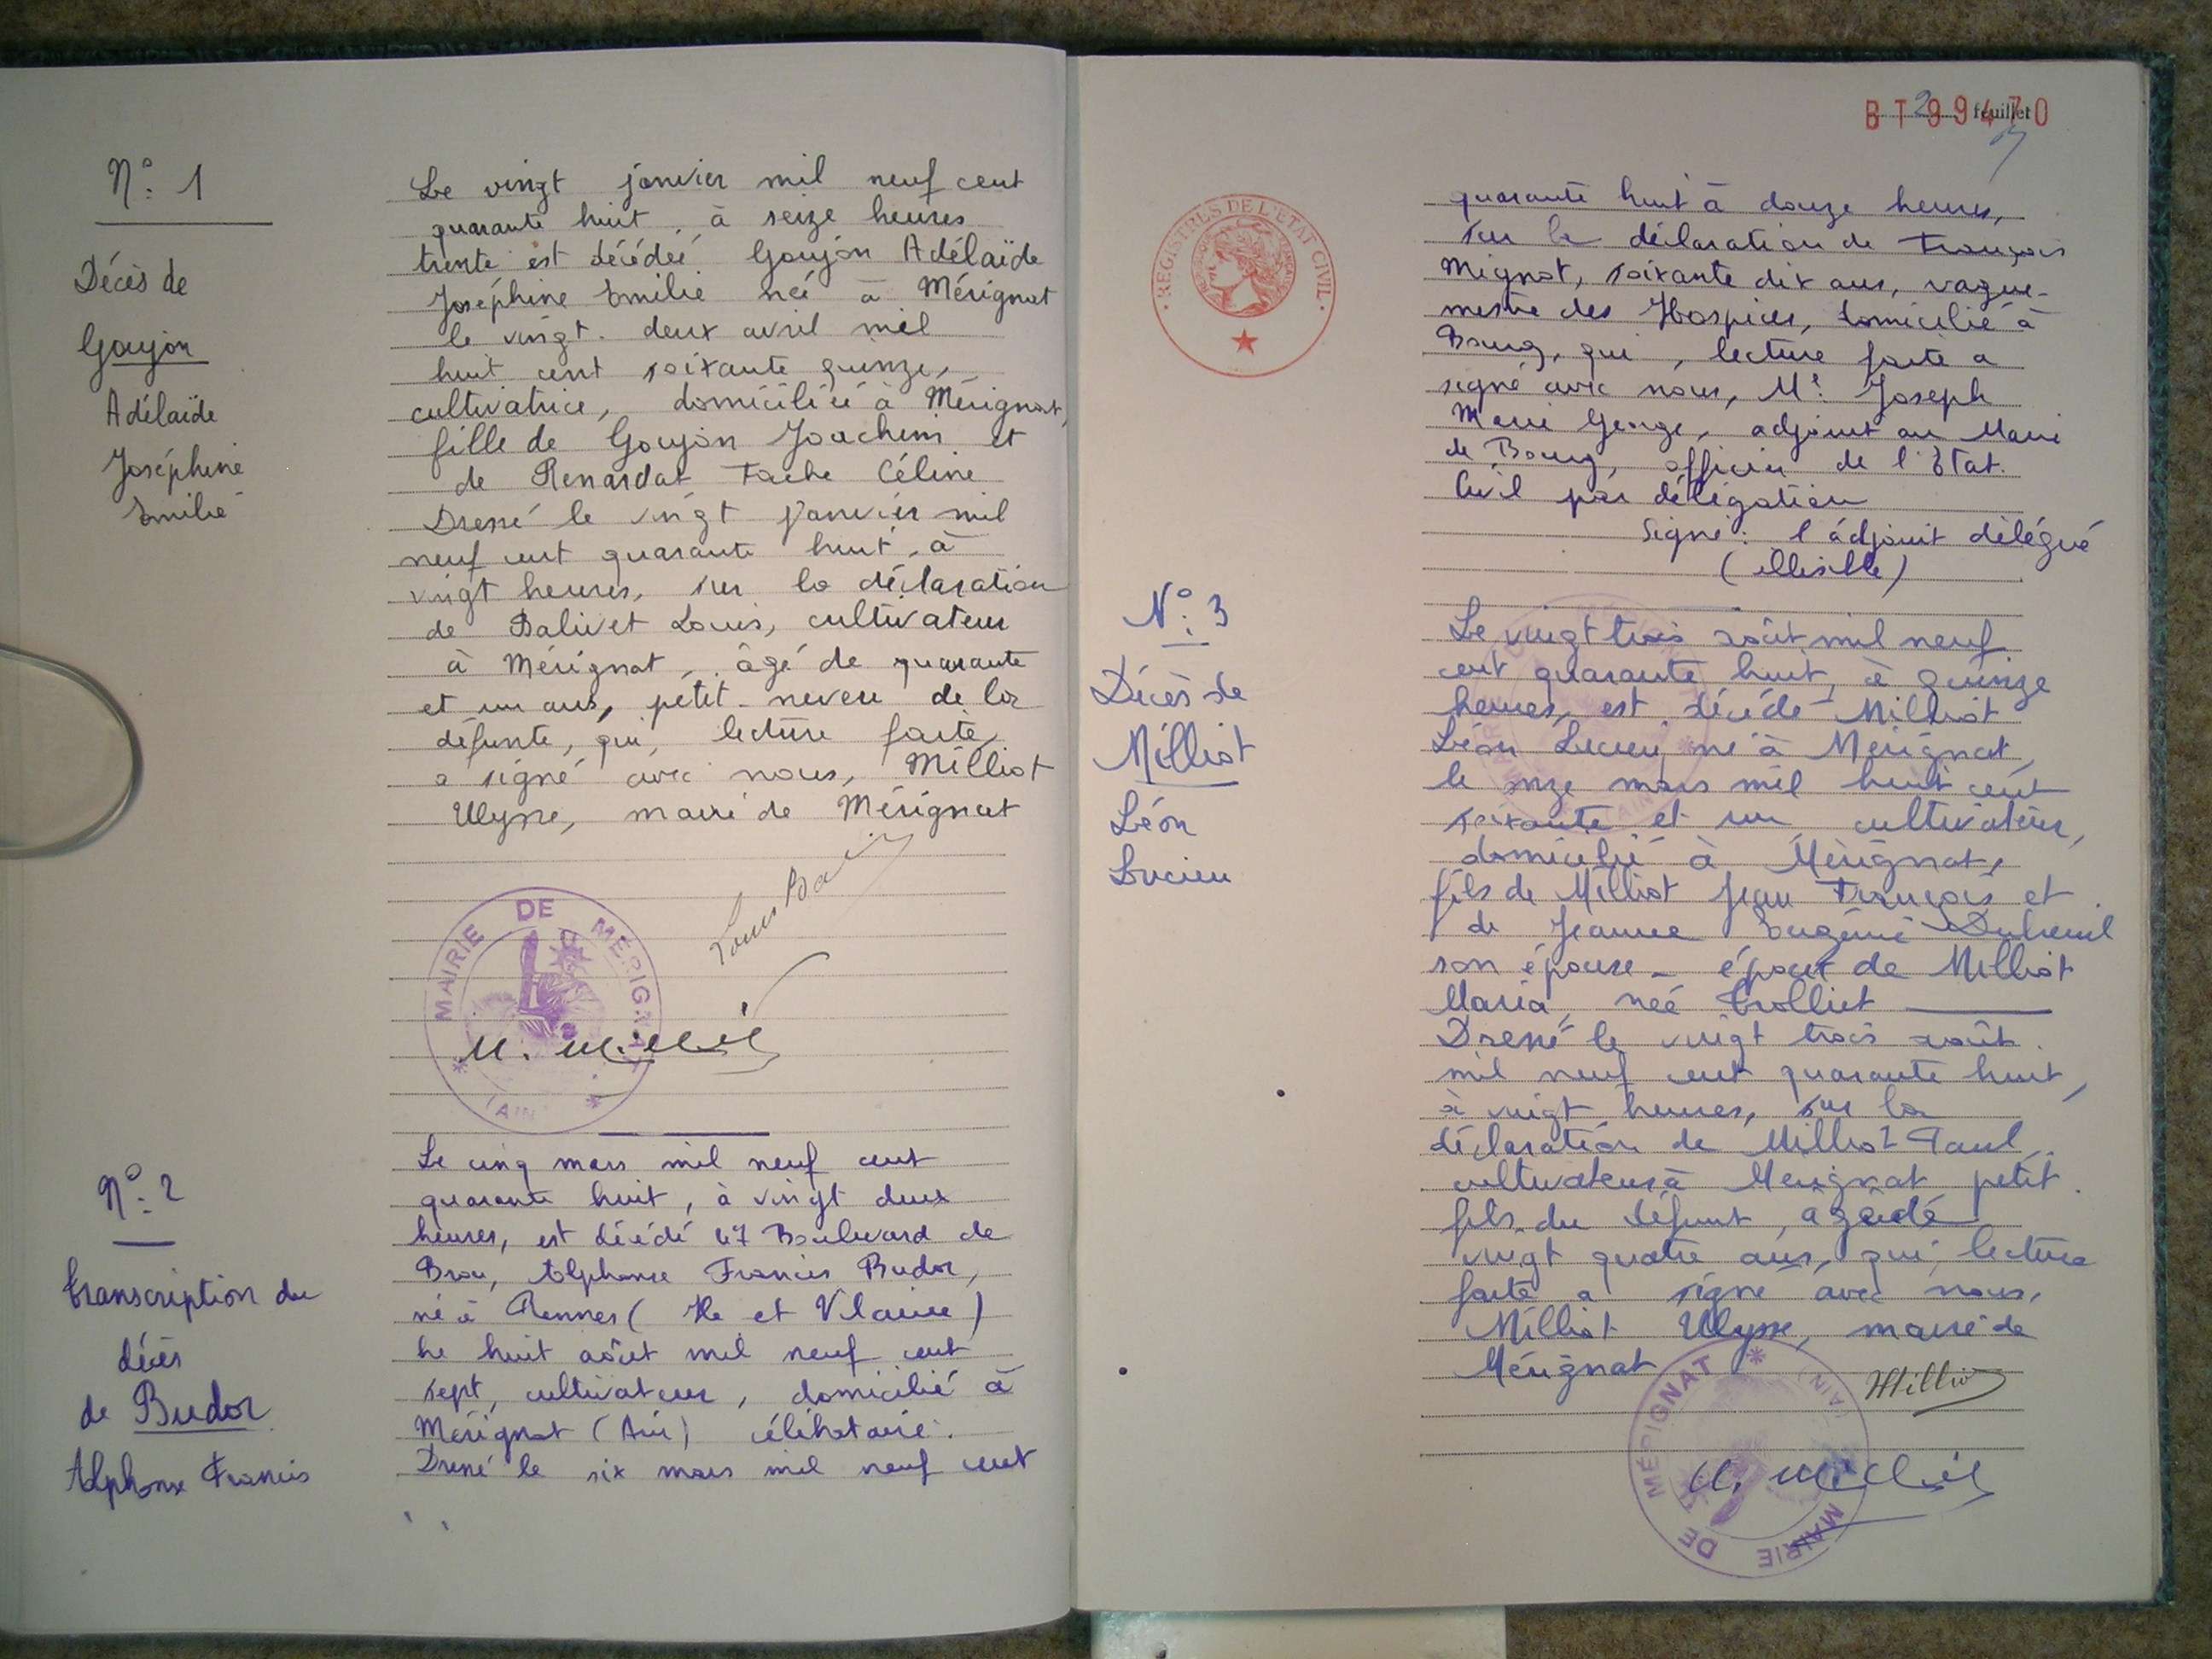 N° 1
Décès de
Goujon
Adélaïde
Joséphine
Emilie
Le vingt janvier mil neuf cent
quarante huit, à seize heures
trente est décédée Goujon Adélaïde
Joséphine Emilie née à Mérignat
le vingt-deux avril mil
huit cent soixante quinze,
cultivatrice, domiciliée à Mérignat,
fille de Goujon Joachim et
de Renardat Fache Céline
Dressé le vingt janvier mil
neuf cent quarante huit, à
vingt heures, sur la déclaration
de Balivet Louis, cultivateur
à Mérignat, âgé de quarante
et un ans, petit-neveu de la
défunte, qui, lecture faite,
a signé avec nous, Milliot
Ulysse, maire de Mérignat
MAIRIE DE MÉRIGNAT
(AIN)
N° 2
transcription du
décès
de Budor
Alphonse Francis
Le cinq mars mil neuf cent
quarante huit, à vingt deux
heures, est décédé 47 Boulevard de
Brou, Alphonse Francis Budor,
né à Rennes (Ile et Vilaine)
le huit août mil neuf cent
sept, cultivateur, domicilié à
Mérignat (Ain) célibataire.
Dressé le six mars mil neuf cent
2 feuillet
BT 99470
REGISTRES DE L'ETAT CIVIL
quarante huit à douze heures,
sur la déclaration de François
Mignot, soixante dix ans, vague-
mestre des Hospices, domicilié à
Bourg, qui, lecture faite a
signé avec nous, Mr Joseph
Marie George, adjoint au Maire
de Bourg, officier de l'Etat.
Civil par délégation
Signé: l'adjoint délégué
(illisible)
N° 3
Décès de
Milliot
Léon
Lucien
Le vingt trois août mil neuf
cent quarante huit, à quinze
heures, est décédé Milliot
Léon Lucien, né à Mérignat,
le onze mars mil huit cent
soixante et un cultivateur,
domicilié à Mérignat,
fils de Milliot Jean François et
de Jeanne Eugénie Dubreuil
son épouse - époux de Milliot
Maria, née Trolliet
Dressé le vingt trois août
mil neuf cent quarante huit,
à vingt heures, sur la
déclaration de Milliot Paul,
cultivateur à Mérignat petit
fils du défunt, âgé de
vingt quatre ans, qui, lecture
faite a signé avec nous,
Milliot Ulysse, maire de
Mérignat
Milliot
MAIRIE DE MÉRIGNAT
(AIN)